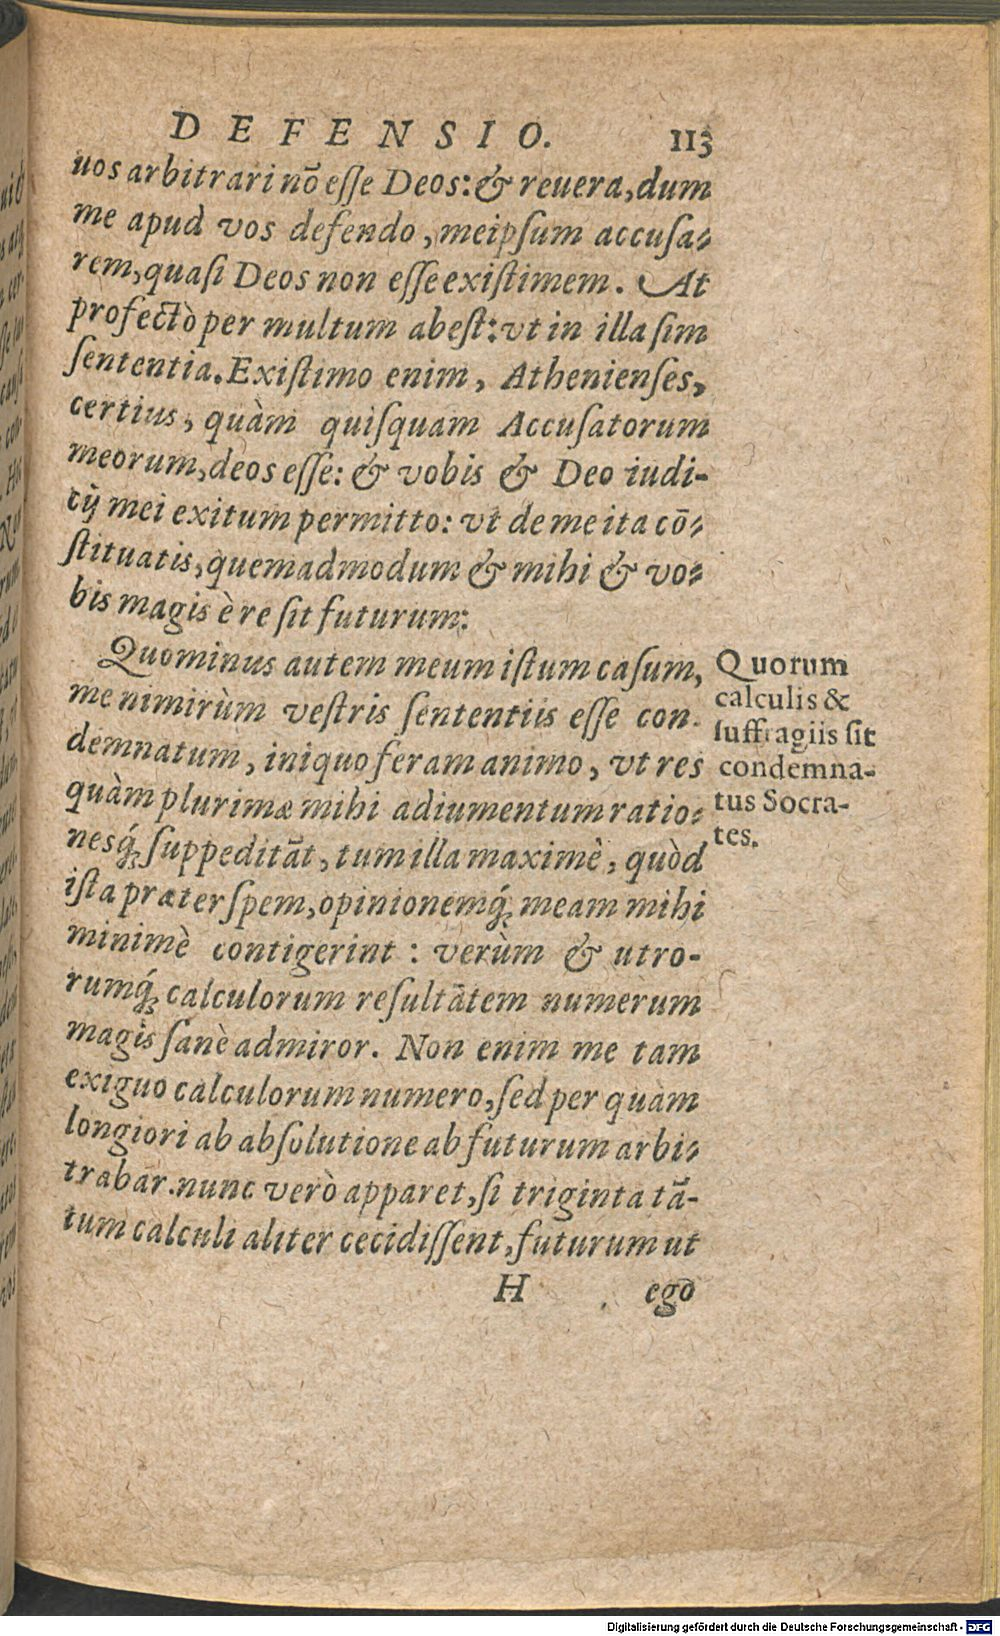 DEFENSIO. 113
uos arbitrari nō eſſe Deos: & reuera, dum
me apud vos defendo, meipſum accuſa-
rem, quaſi Deos non eſſe exiſtimem. At
profectò per multum abeſt: vt in illa ſim
ſententia. Exiſtimo enim, Athenienſes,
certius, quàm quiſquam Accuſatorum
meorum, deos eſſe: & vobis & Deo iudi-
cij mei exitum permitto: vt de me ita cō-
ſtituatis, quemadmodum & mihi & vo-
bis magis è re ſit futurum:
Quominus autem meum iſtum caſum,
me nimirùm veſtris ſententiis eſſe con-
demnatum, iniquo feram animo, vt res
quàm plurimæ mihi adiumentum ratio-
nesq́; ſuppeditāt, tum illa maximè, quòd
iſta præter ſpem, opinionemq́; meam mihi
minimè contigerint: verùm & utro-
rumq́; calculorum reſultātem numerum
magis ſanè admiror. Non enim me tam
exiguo calculorum numero, ſed per quàm
longiori ab abſolutione abfuturum arbi-
trabar. nunc verò apparet, ſi triginta tā-
tum calculi aliter cecidiſſent, futurum ut
H ego
Quorum
calculis &
ſuffragiis ſit
condemna-
tus Socra-
tes.
Digitalisierung gefördert durch die Deutsche Forschungsgemeinschaft - DFG